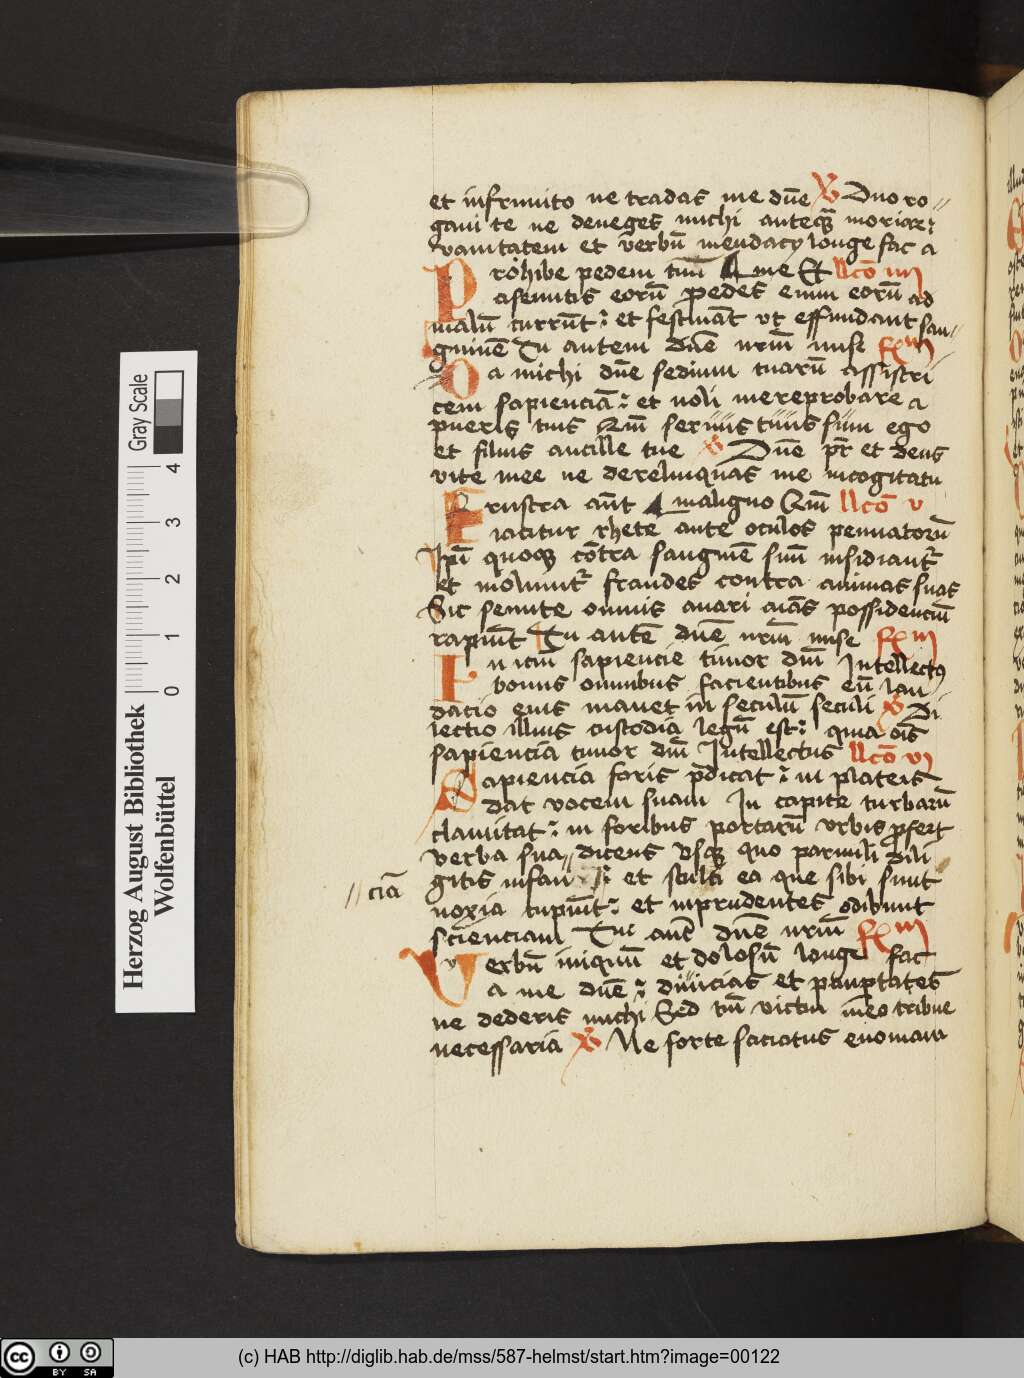 et infrunito ne tradas me dūe ℣ Duo ro//
gaui te ne deneges michi anteqꝫ moriar:
vanitatem et verbū mendacy longe fac a
Prohibe pedem tuū A me Et llcō iiij
a semitis eorū pedes enim eorū ad
malū currūt: et festināt vt effundant san//
guinē Tu autem dūe nrīm mise Rm
Da michi dūe sedium tuarū assistri
cem sapienciā: et noli me reprobare a
pueris tuis Qm̄ seruus tuus sum ego
et filius ancille tue ℣ Dūe pr̄ et deus
vite mee ne derelinquas me in cogitatu
Frustra aūt A maligno Qm̄ llcō v
iacitur rhete ante oculos pennatorū
Ipī quoqꝫ cōtra sanguinē suū insidiant᷑
et moliunt᷑ fraudes contra animas suas
Sic semite omnis auari aīas possidenciū
rapiūt Tu autē dūe nrīm mise Rm
Iniciū sapiencie timor dnī Intellectus
bonus omnibus facientibus eū lau
dacio eius manet in seculū seculi ℣ Di
lectio illius custodia legū est: quia oīs
sapiencia timor dnī Intellectus llcō vi
Sapiencia foris p̄dicat: in plateis
dat vocem suam In capite turbarū
clamitat: in foribus portarū vrbis profert
verba sua // dicens vsqꝫ quo paruuli dili
gitis infan : et stulti ea que sibi sunt
//ciā
noxia cupiūt: et inprudentes odibunt
scienciam Tu aūt dūe nrīm Rm
Verbū iniquū et dolosū longe fac
a me dūe: diuicias et paupertates
ne dederis michi Sed tm̄ victui meo tribue
necessaria ℣ Ne forte saciatus euomam
Herzog August Bibliothek
Wolfenbüttel
0 1 2 3 4
Gray Scale
cc BY SA
(c) HAB http://diglib.hab.de/mss/587-helmst/start.htm?image=00122